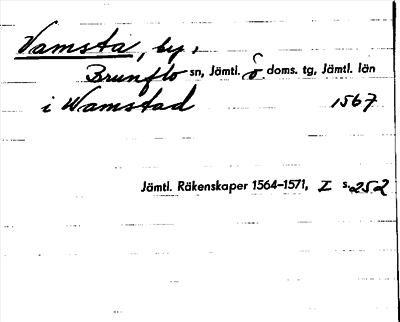 Vamsta, by,
Brunflo sn, Jämtl. ö doms. tg, Jämtl. län
i Wamstad 1567
Jämtl. Räkenskaper 1564–1571, I s. 252